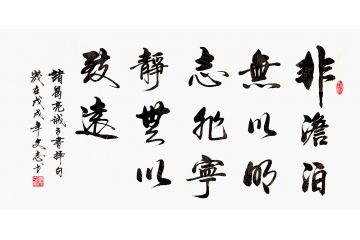 非澹泊
無以明
志非寧
靜無以
致遠
諸葛亮诫子書摘句
歲在戊戌年文志书